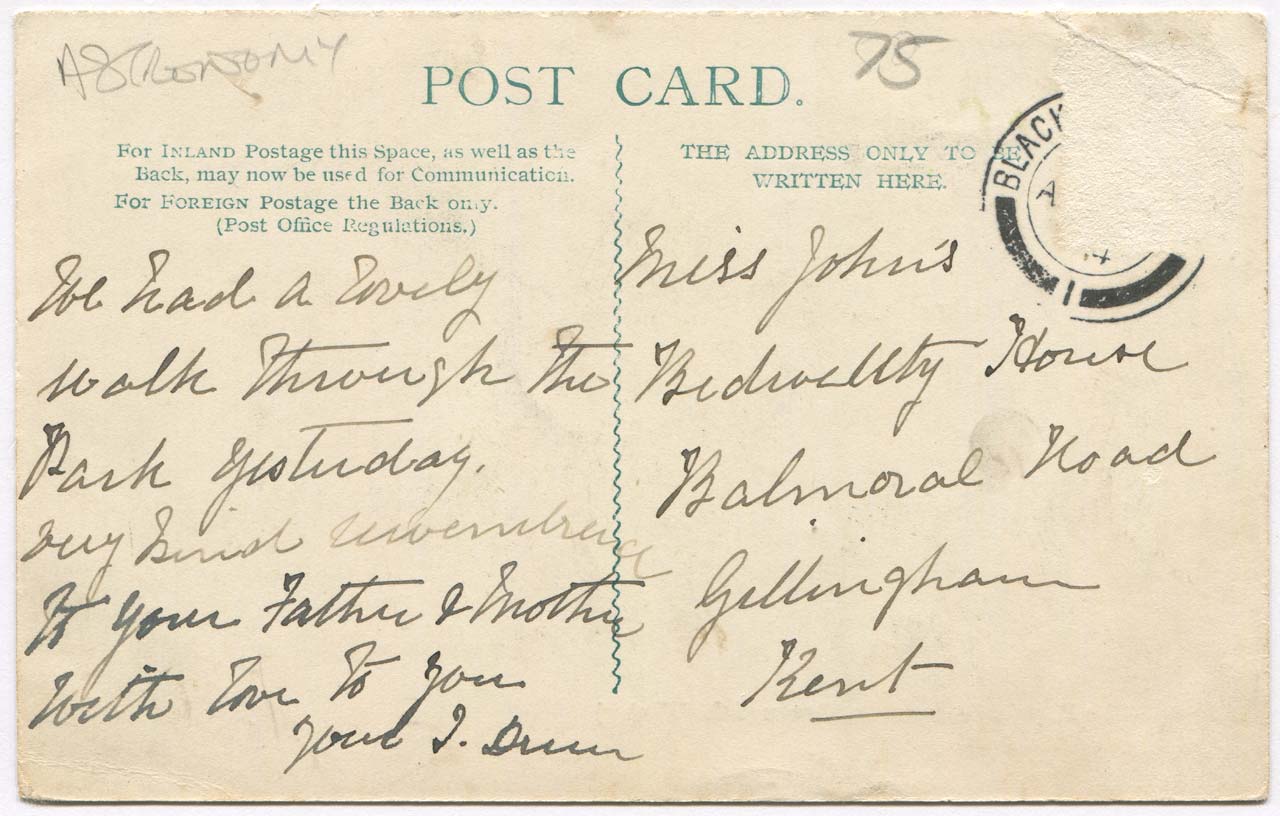 ASTRONOMY
75
POST CARD.
For INLAND Postage this Space, as well as the
Back, may now be used for Communication.
For FOREIGN Postage the Back only.
(Post Office Regulations.)
THE ADDRESS ONLY TO BE
WRITTEN HERE.
BLACK
A
14
1
We had a lovely
walk through the
Park yesterday.
Very kind remembrance
to your Father & Mother
With love to you
your J.
Miss John's
Bedwellty House
Balmoral Road
Gillingham
Kent